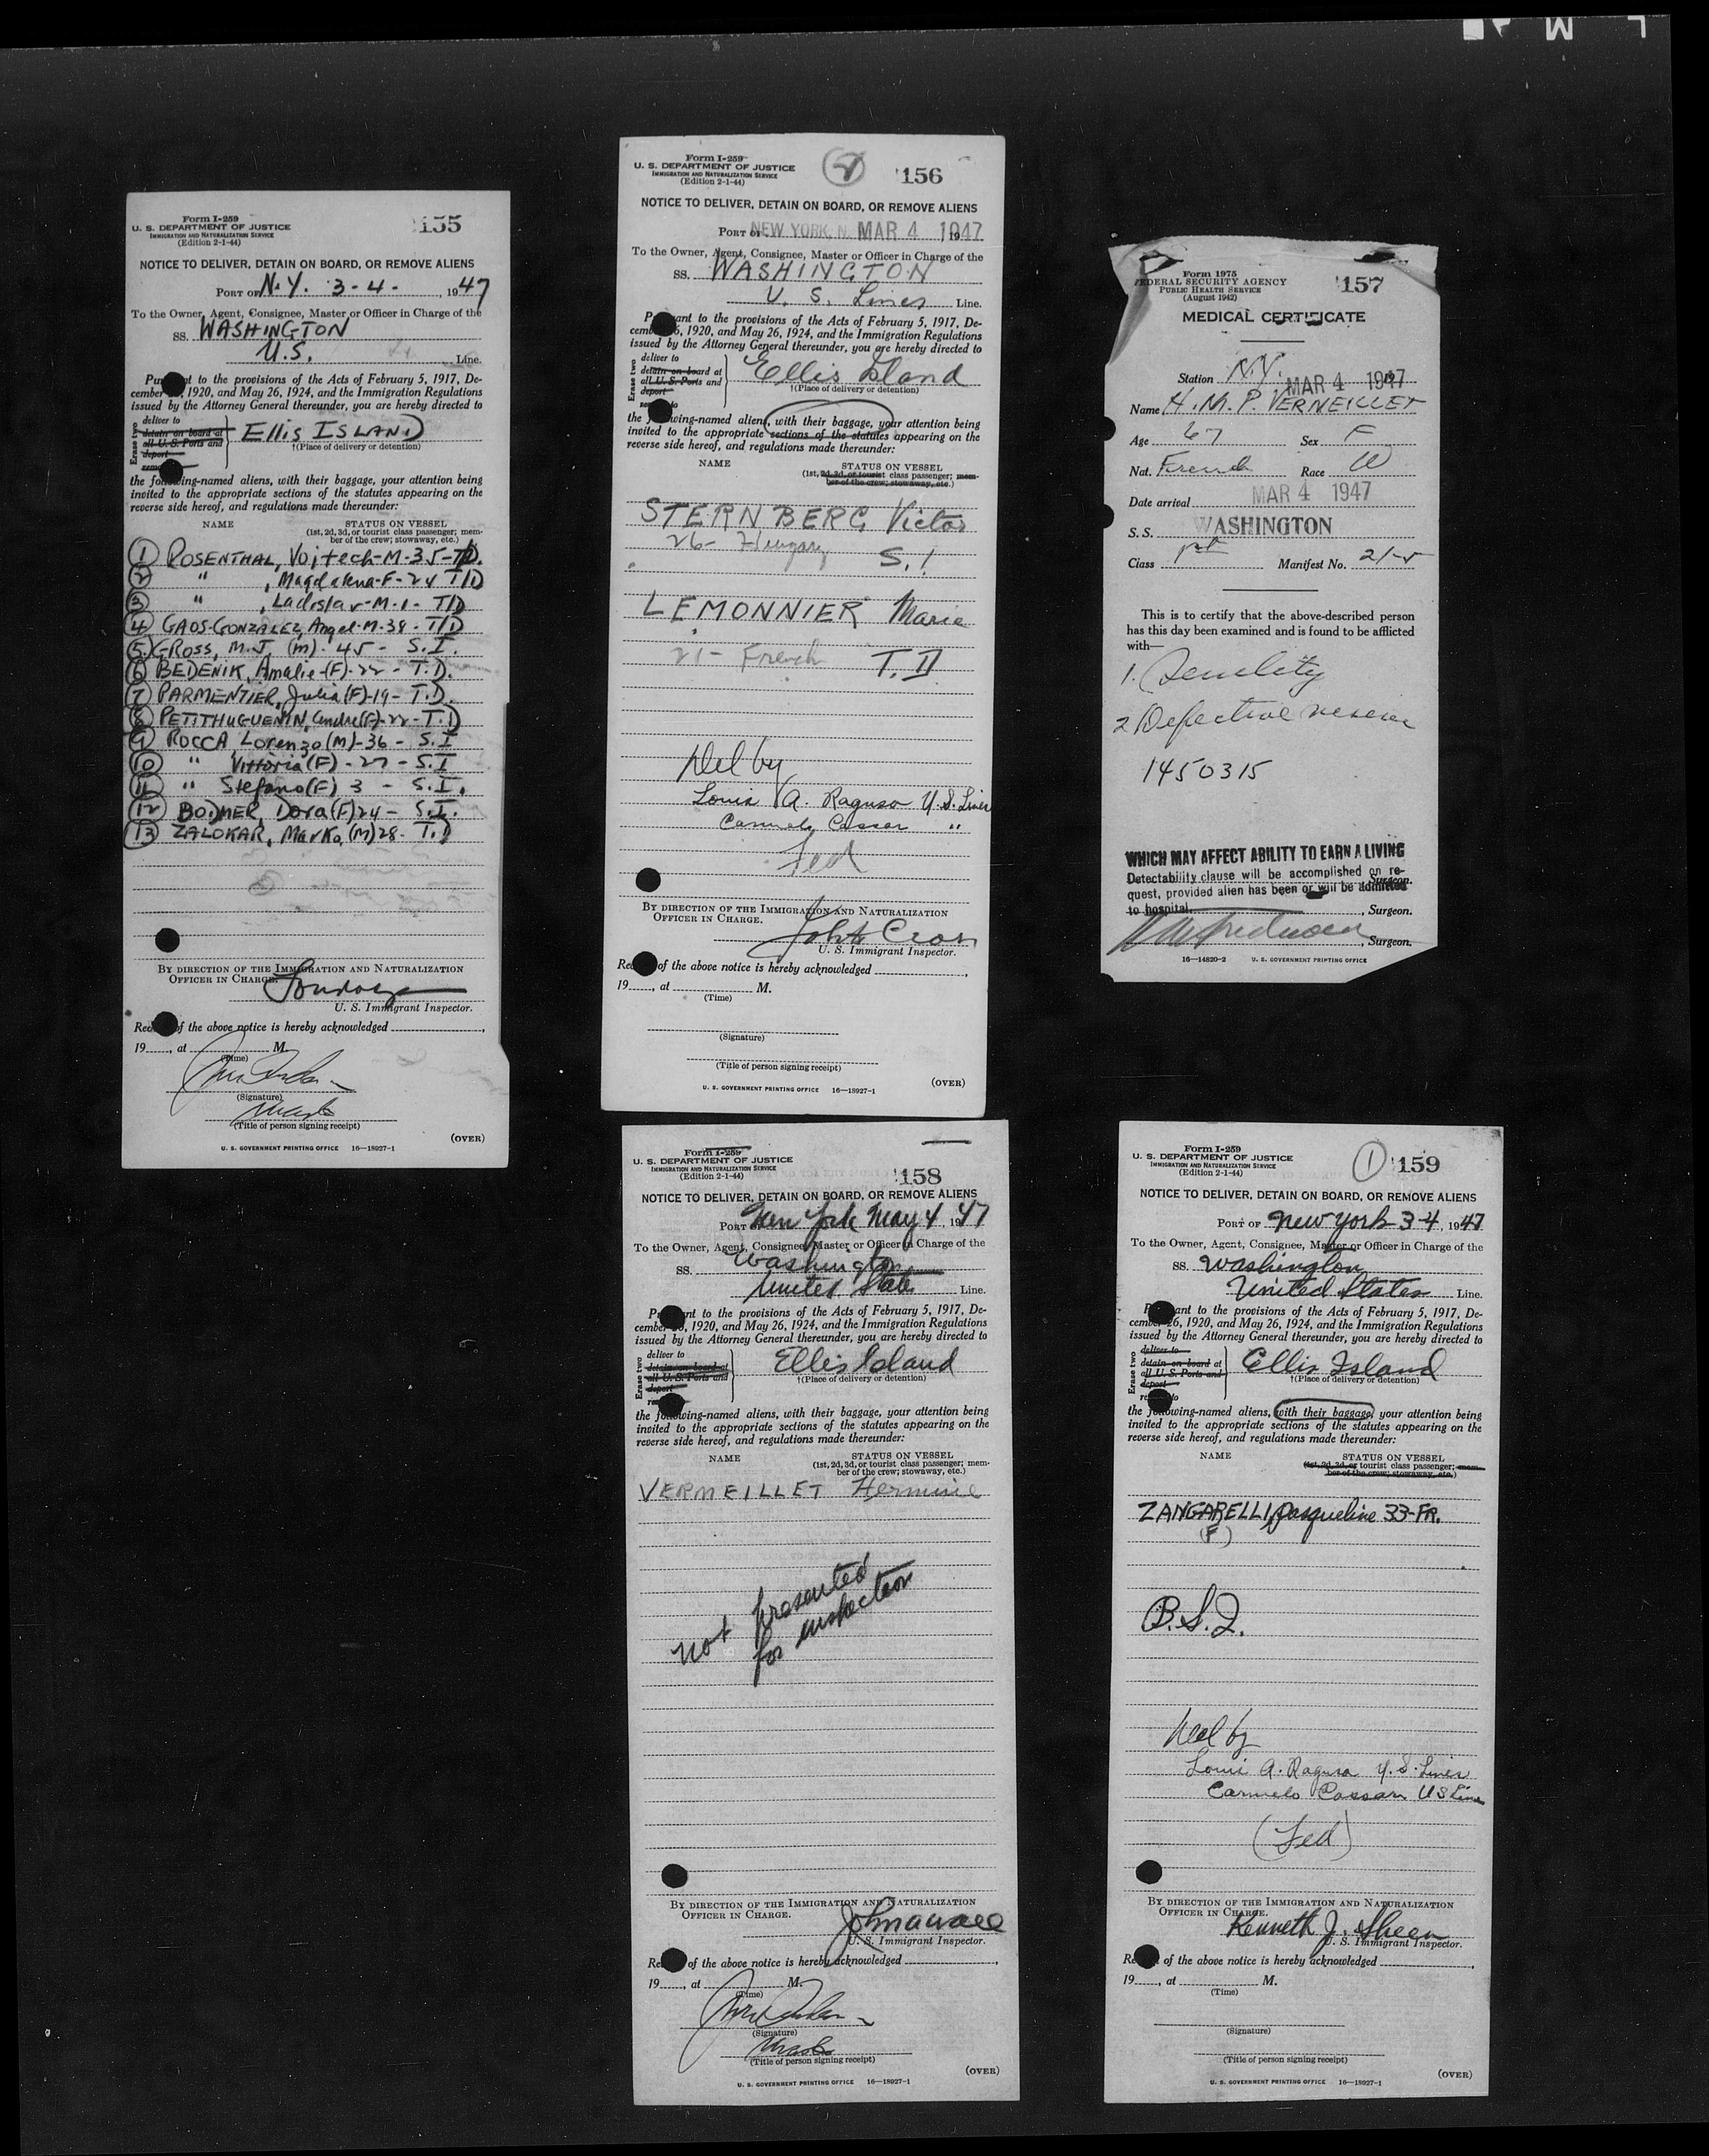 155
Form I-259
U. S. DEPARTMENT OF JUSTICE
IMMIGRATION AND NATURALIZATION SERVICE
(Edition 2-1-44)
NOTICE TO DELIVER, DETAIN ON BOARD, OR REMOVE ALIENS
PORT OF N.Y. 3-4-, 1947
To the Owner, Agent, Consignee, Master or Officer in Charge of the
SS. WASHINGTON
U.S. Line.
Pursuant to the provisions of the Acts of February 5, 1917, De-
cember 26, 1920, and May 26, 1924, and the Immigration Regulations
issued by the Attorney General thereunder, you are hereby directed to
Erase two
deliver to
detain on board at
all U. S. Ports and
deport
remove to
Ellis ISLAND
†(Place of delivery or detention)
the following-named aliens, with their baggage, your attention being
invited to the appropriate sections of the statutes appearing on the
reverse side hereof, and regulations made thereunder:
NAME STATUS ON VESSEL
(1st, 2d, 3d, or tourist class passenger; mem-
ber of the crew; stowaway, etc.)
1 ROSENTHAL, Vojtech-M-35-T/D.
2 " , Magdalena-F-24 T/D
3 " , Ladislav-M-1- T/D
4 GAOS-GONZALEZ, Angel-M-38- T/D
5 GROSS, M.J. (m)- 45- S.I.
6 BEDENIK, Amalie-(F)-22- T.D.
7 PARMENTIER, Julia(F)-19- T.D.
8 PETITHUGUENIN, Andre(F)-22-T.D
9 ROCCA, Lorenzo(M)-36- S.I
10 " Vittoria(F)-27-S.I
11 " Stefano(F) 3 - S.I.
12 BODMER, Dora(F)24- S.I.
13 ZALOKAR, Marko,(M)28- T.D
BY DIRECTION OF THE IMMIGRATION AND NATURALIZATION
OFFICER IN CHARGE.
U. S. Immigrant Inspector.
Receipt of the above notice is hereby acknowledged
19 , at M.
(Time)
(Signature)
(Title of person signing receipt)
(OVER)
U. S. GOVERNMENT PRINTING OFFICE 16—18927-1
156
Form I-259
U. S. DEPARTMENT OF JUSTICE
IMMIGRATION AND NATURALIZATION SERVICE
(Edition 2-1-44)
NOTICE TO DELIVER, DETAIN ON BOARD, OR REMOVE ALIENS
PORT OF NEW YORK, N. MAR 4 1947
To the Owner, Agent, Consignee, Master or Officer in Charge of the
SS. WASHINGTON
U. S. Lines Line.
Pursuant to the provisions of the Acts of February 5, 1917, De-
cember 26, 1920, and May 26, 1924, and the Immigration Regulations
issued by the Attorney General thereunder, you are hereby directed to
Erase two
deliver to
detain on board at
all U. S. Ports and
deport
remove to
Ellis Island
†(Place of delivery or detention)
the following-named aliens, with their baggage, your attention being
invited to the appropriate sections of the statutes appearing on the
reverse side hereof, and regulations made thereunder:
NAME STATUS ON VESSEL
(1st, 2d, 3d, or tourist class passenger; mem-
ber of the crew; stowaway, etc.)
STERNBERG Victor
26- Hungary S.I
LEMONNIER Marie
21- French T.D
Del by
Louis A. Ragusa U.S. Lines
Carmelo Cassar "
Fed
BY DIRECTION OF THE IMMIGRATION AND NATURALIZATION
OFFICER IN CHARGE.
U. S. Immigrant Inspector.
Receipt of the above notice is hereby acknowledged
19 , at M.
(Time)
(Signature)
(Title of person signing receipt)
U. S. GOVERNMENT PRINTING OFFICE 16—18927-1
(OVER)
157
Form 1975
FEDERAL SECURITY AGENCY
PUBLIC HEALTH SERVICE
(August 1942)
MEDICAL CERTIFICATE
Station N.Y. MAR 4 1947
Name H. M. P. VERNEILLET
Age 67 Sex F
Nat. French Race W
Date arrival MAR 4 1947
S. S. WASHINGTON
Class 1st Manifest No. 21-5
This is to certify that the above-described person
has this day been examined and is found to be afflicted
with—
1. Senility
2 Defective
1450315
WHICH MAY AFFECT ABILITY TO EARN A LIVING
Detectability clause will be accomplished on re-
quest, provided alien has been or will be admitted
to hospital.
Surgeon.
, Surgeon.
, Surgeon.
16—14820-2 U. S. GOVERNMENT PRINTING OFFICE
158
Form I-259
U. S. DEPARTMENT OF JUSTICE
IMMIGRATION AND NATURALIZATION SERVICE
(Edition 2-1-44)
NOTICE TO DELIVER, DETAIN ON BOARD, OR REMOVE ALIENS
PORT New York May 4 1947
To the Owner, Agent, Consignee, Master or Officer in Charge of the
SS. Washington
United States Line.
Pursuant to the provisions of the Acts of February 5, 1917, De-
cember 26, 1920, and May 26, 1924, and the Immigration Regulations
issued by the Attorney General thereunder, you are hereby directed to
Erase two
deliver to
detain on board at
all U. S. Ports and
deport
remove to
Ellis Island
†(Place of delivery or detention)
the following-named aliens, with their baggage, your attention being
invited to the appropriate sections of the statutes appearing on the
reverse side hereof, and regulations made thereunder:
NAME STATUS ON VESSEL
(1st, 2d, 3d, or tourist class passenger; mem-
ber of the crew; stowaway, etc.)
VERMEILLET Hermine
not presented
for inspection
BY DIRECTION OF THE IMMIGRATION AND NATURALIZATION
OFFICER IN CHARGE.
U. S. Immigrant Inspector.
Receipt of the above notice is hereby acknowledged
19 , at M.
(Time)
(Signature)
(Title of person signing receipt)
(OVER)
U. S. GOVERNMENT PRINTING OFFICE 16—18927-1
1 159
Form I-259
U. S. DEPARTMENT OF JUSTICE
IMMIGRATION AND NATURALIZATION SERVICE
(Edition 2-1-44)
NOTICE TO DELIVER, DETAIN ON BOARD, OR REMOVE ALIENS
PORT OF New York 3-4, 1947
To the Owner, Agent, Consignee, Master or Officer in Charge of the
SS. Washington
United States Line.
Pursuant to the provisions of the Acts of February 5, 1917, De-
cember 26, 1920, and May 26, 1924, and the Immigration Regulations
issued by the Attorney General thereunder, you are hereby directed to
Erase two
deliver to
detain on board at
all U. S. Ports and
deport
remove to
Ellis Island
†(Place of delivery or detention)
the following-named aliens, with their baggage, your attention being
invited to the appropriate sections of the statutes appearing on the
reverse side hereof, and regulations made thereunder:
NAME STATUS ON VESSEL
(1st, 2d, 3d, or tourist class passenger; mem-
ber of the crew; stowaway, etc.)
ZANGARELLI, Pasqueline 33-FR.
(F)
B.S.I.
Del by
Louis A. Ragusa U.S. Lines
Carmelo Cassar US Lines
(Fed)
BY DIRECTION OF THE IMMIGRATION AND NATURALIZATION
OFFICER IN CHARGE.
Kenneth J. Sheen
U. S. Immigrant Inspector.
Receipt of the above notice is hereby acknowledged
19 , at M.
(Time)
(Signature)
(Title of person signing receipt)
(OVER)
U. S. GOVERNMENT PRINTING OFFICE 16—18927-1